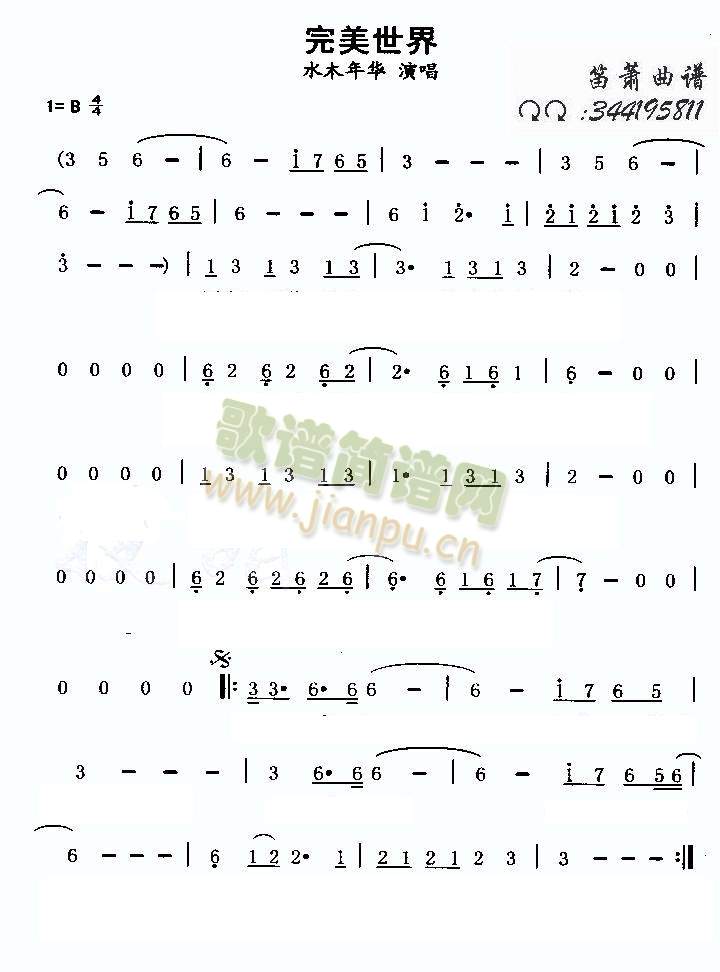 完美世界
水木年华 演唱
笛萧曲谱
QQ:344195811
1= B 4/4
(3 5 6 - | 6 - i 7 6 5 | 3 - - - | 3 5 6 - |
6 - i 7 6 5 | 6 - - - | 6 i 2̇· i | 2̇ i 2̇ i 2̇ 3̇ |
3̇ - - -) | 1 3 1 3 1 3 | 3· 1 3 1 3 | 2 - 0 0 |
0 0 0 0 | 6̣ 2 6̣ 2 6̣ 2 | 2· 6̣ 1 6̣ 1 | 6̣ - 0 0 |
歌谱简谱网
www.jianpu.cn
0 0 0 0 | 1 3 1 3 1 3 | 1· 1 3 1 3 | 2 - 0 0 |
0 0 0 0 | 6̣ 2 6̣ 2 6̣ 2 6̣ | 6̣· 6̣ 1 6̣ 1 7̣ | 7̣ - 0 0 |
0 0 0 0 ‖: 3 3· 6· 6 6 - | 6 - i 7 6 5 |
3 - - - | 3 6· 6 6 - | 6 - i 7 6 5 6 |
6 - - - | 6̣ 1 2 2· 1 | 2 1 2 1 2 3 | 3 - - - :‖